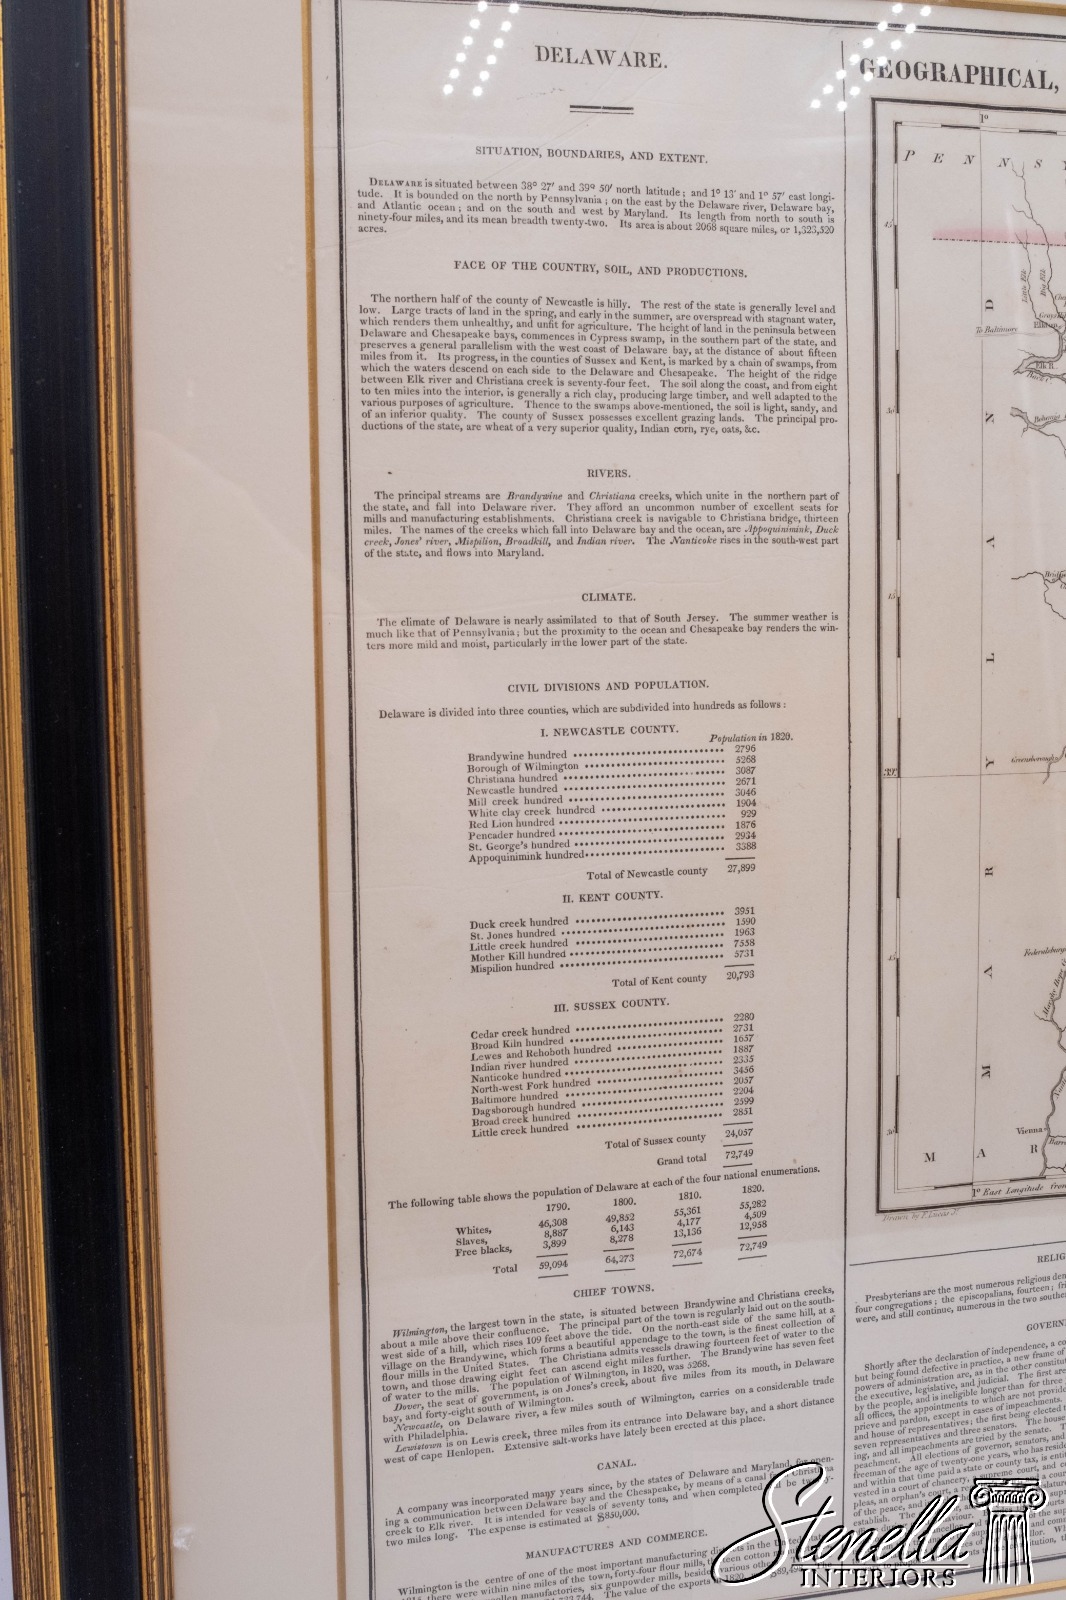 DELAWARE.
SITUATION, BOUNDARIES, AND EXTENT.
DELAWARE is situated between 38° 27′ and 39° 50′ north latitude; and 1° 13′ and 1° 57′ east longi-
tude. It is bounded on the north by Pennsylvania; on the east by the Delaware river, Delaware bay,
and Atlantic ocean; and on the south and west by Maryland. Its length from north to south is
ninety-four miles, and its mean breadth twenty-two. Its area is about 2068 square miles, or 1,323,520
acres.
FACE OF THE COUNTRY, SOIL, AND PRODUCTIONS.
The northern half of the county of Newcastle is hilly. The rest of the state is generally level and
low. Large tracts of land in the spring, and early in the summer, are overspread with stagnant water,
which renders them unhealthy, and unfit for agriculture. The height of land in the peninsula between
Delaware and Chesapeake bays, commences in Cypress swamp, in the southern part of the state, and
preserves a general parallelism with the west coast of Delaware bay, at the distance of about fifteen
miles from it. Its progress, in the counties of Sussex and Kent, is marked by a chain of swamps, from
which the waters descend on each side to the Delaware and Chesapeake. The height of the ridge
between Elk river and Christiana creek is seventy-four feet. The soil along the coast, and from eight
to ten miles into the interior, is generally a rich clay, producing large timber, and well adapted to the
various purposes of agriculture. Thence to the swamps above-mentioned, the soil is light, sandy, and
of an inferior quality. The county of Sussex possesses excellent grazing lands. The principal pro-
ductions of the state, are wheat of a very superior quality, Indian corn, rye, oats, &c.
RIVERS.
The principal streams are Brandywine and Christiana creeks, which unite in the northern part of
the state, and fall into Delaware river. They afford an uncommon number of excellent seats for
mills and manufacturing establishments. Christiana creek is navigable to Christiana bridge, thirteen
miles. The names of the creeks which fall into Delaware bay and the ocean, are Appoquinimink, Duck
creek, Jones' river, Mispilion, Broadkill, and Indian river. The Nanticoke rises in the south-west part
of the state, and flows into Maryland.
CLIMATE.
The climate of Delaware is nearly assimilated to that of South Jersey. The summer weather is
much like that of Pennsylvania; but the proximity to the ocean and Chesapeake bay renders the win-
ters more mild and moist, particularly in the lower part of the state.
CIVIL DIVISIONS AND POPULATION.
Delaware is divided into three counties, which are subdivided into hundreds as follows:
I. NEWCASTLE COUNTY.
Population in 1820.
Brandywine hundred 2796
Borough of Wilmington 5268
Christiana hundred 3087
Newcastle hundred 2671
Mill creek hundred 3046
White clay creek hundred 1904
Red Lion hundred 929
Pencader hundred 1876
St. George's hundred 2934
Appoquinimink hundred 3388
Total of Newcastle county 27,899
II. KENT COUNTY.
Duck creek hundred 3951
St. Jones hundred 1590
Little creek hundred 1963
Mother Kill hundred 7558
Mispilion hundred 5731
Total of Kent county 20,793
III. SUSSEX COUNTY.
Cedar creek hundred 2280
Broad Kiln hundred 2731
Lewes and Rehoboth hundred 1657
Indian river hundred 1887
Nanticoke hundred 2335
North-west Fork hundred 3456
Baltimore hundred 2057
Dagsborough hundred 2204
Broad creek hundred 2599
Little creek hundred 2851
Total of Sussex county 24,057
Grand total 72,749
The following table shows the population of Delaware at each of the four national enumerations.
1790. 1800. 1810. 1820.
Whites, 46,308 49,852 55,361 55,282
Slaves, 8,887 6,143 4,177 4,509
Free blacks, 3,899 8,278 13,136 12,958
Total 59,094 64,273 72,674 72,749
CHIEF TOWNS.
Wilmington, the largest town in the state, is situated between Brandywine and Christiana creeks,
about a mile above their confluence. The principal part of the town is regularly laid out on the south-
west side of a hill, which rises 109 feet above the tide. On the north-east side of the same hill, at a
village on the Brandywine, which forms a beautiful appendage to the town, is the finest collection of
flour mills in the United States. The Christiana admits vessels drawing fourteen feet of water to the
town, and those drawing eight feet can ascend eight miles further. The Brandywine has seven feet
of water to the mills. The population of Wilmington, in 1820, was 5268.
Dover, the seat of government, is on Jones's creek, about five miles from its mouth, in Delaware
bay, and forty-eight south of Wilmington.
Newcastle, on Delaware river, a few miles south of Wilmington, carries on a considerable trade
with Philadelphia.
Lewistown is on Lewis creek, three miles from its entrance into Delaware bay, and a short distance
west of cape Henlopen. Extensive salt-works have lately been erected at this place.
CANAL.
A company was incorporated many years since, by the states of Delaware and Maryland, for open-
ing a communication between Delaware bay and the Chesapeake, by means of a canal from Christiana
creek to Elk river. It is intended for vessels of seventy tons, and when completed will be twenty-
two miles long. The expense is estimated at $850,000.
MANUFACTURES AND COMMERCE.
Wilmington is the centre of one of the most important manufacturing districts in the United
there were within nine miles of the town, forty-four flour mills, cotton
manufactories, six gunpowder mills, besides various other
The value of the exports in 1820,
GEOGRAPHICAL,
1°
P E N N S Y
45′
Little Elk
Big Elk
To Baltimore
Elkton
Elk R.
Bohemia
30′
15′
39°
Greensborough
Federalsburg
Vienna
M A R Y L A N D
M A R
1° East Longitude from
Drawn by F. Lucas Jr.
RELIG
Presbyterians are the most numerous religious den
four congregations; the episcopalians, fourteen;
were, and still continue, numerous in the two southe
GOVERN
Shortly after the declaration of independence, a co
but being found defective in practice, a new frame of
powers of administration are, as in the other constitut
the executive, legislative, and judicial. The first are
by the people, and is ineligible longer than for three
all offices, the appointments to which are not provide
prieve and pardon, except in cases of impeachments.
and house of representatives; the first being elected
seven representatives and three senators. The house
ing, and all impeachments are tried by the senate.
peachment. All elections of governor, senators, and
freeman of the age of twenty-one years, who has resid
and within that time paid a state or county tax, is enti
vested in a court of chancery, a supreme court, and
pleas, an orphan's court,
of the peace, and
establish.
Stenella
INTERIORS